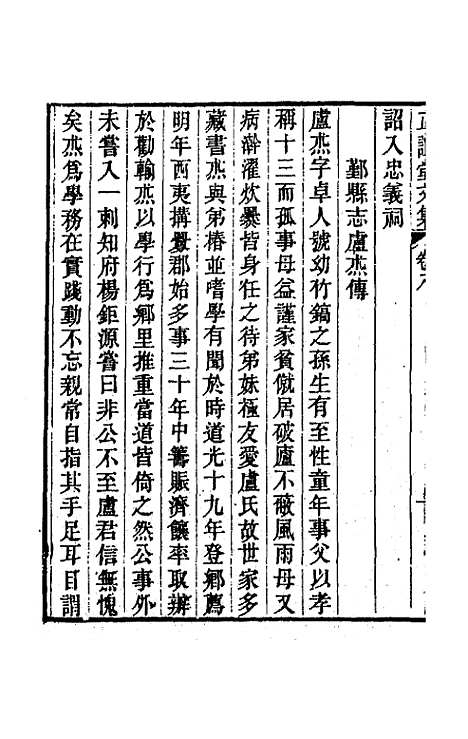 正誼堂文集 卷十八
詔入忠義祠
鄞縣志盧杰傳
盧杰字卓人號幼竹鎬之孫生有至性童年事父以孝
稱十三而孤事母益謹家貧僦居破廬不蔽風雨母又
病澣濯炊爨皆身任之待弟妹極友愛盧氏故世家多
藏書杰與弟椿並嗜學有聞於時道光十九年登鄉薦
明年西夷搆釁郡始多事三十年中籌賑濟饟率取辦
於勸輸杰以學行爲鄉里推重當道皆倚之然公事外
未嘗入一刺知府楊鉅源嘗曰非公不至盧君信無愧
矣杰爲學務在實踐動不忘親常自指其手足耳目謂